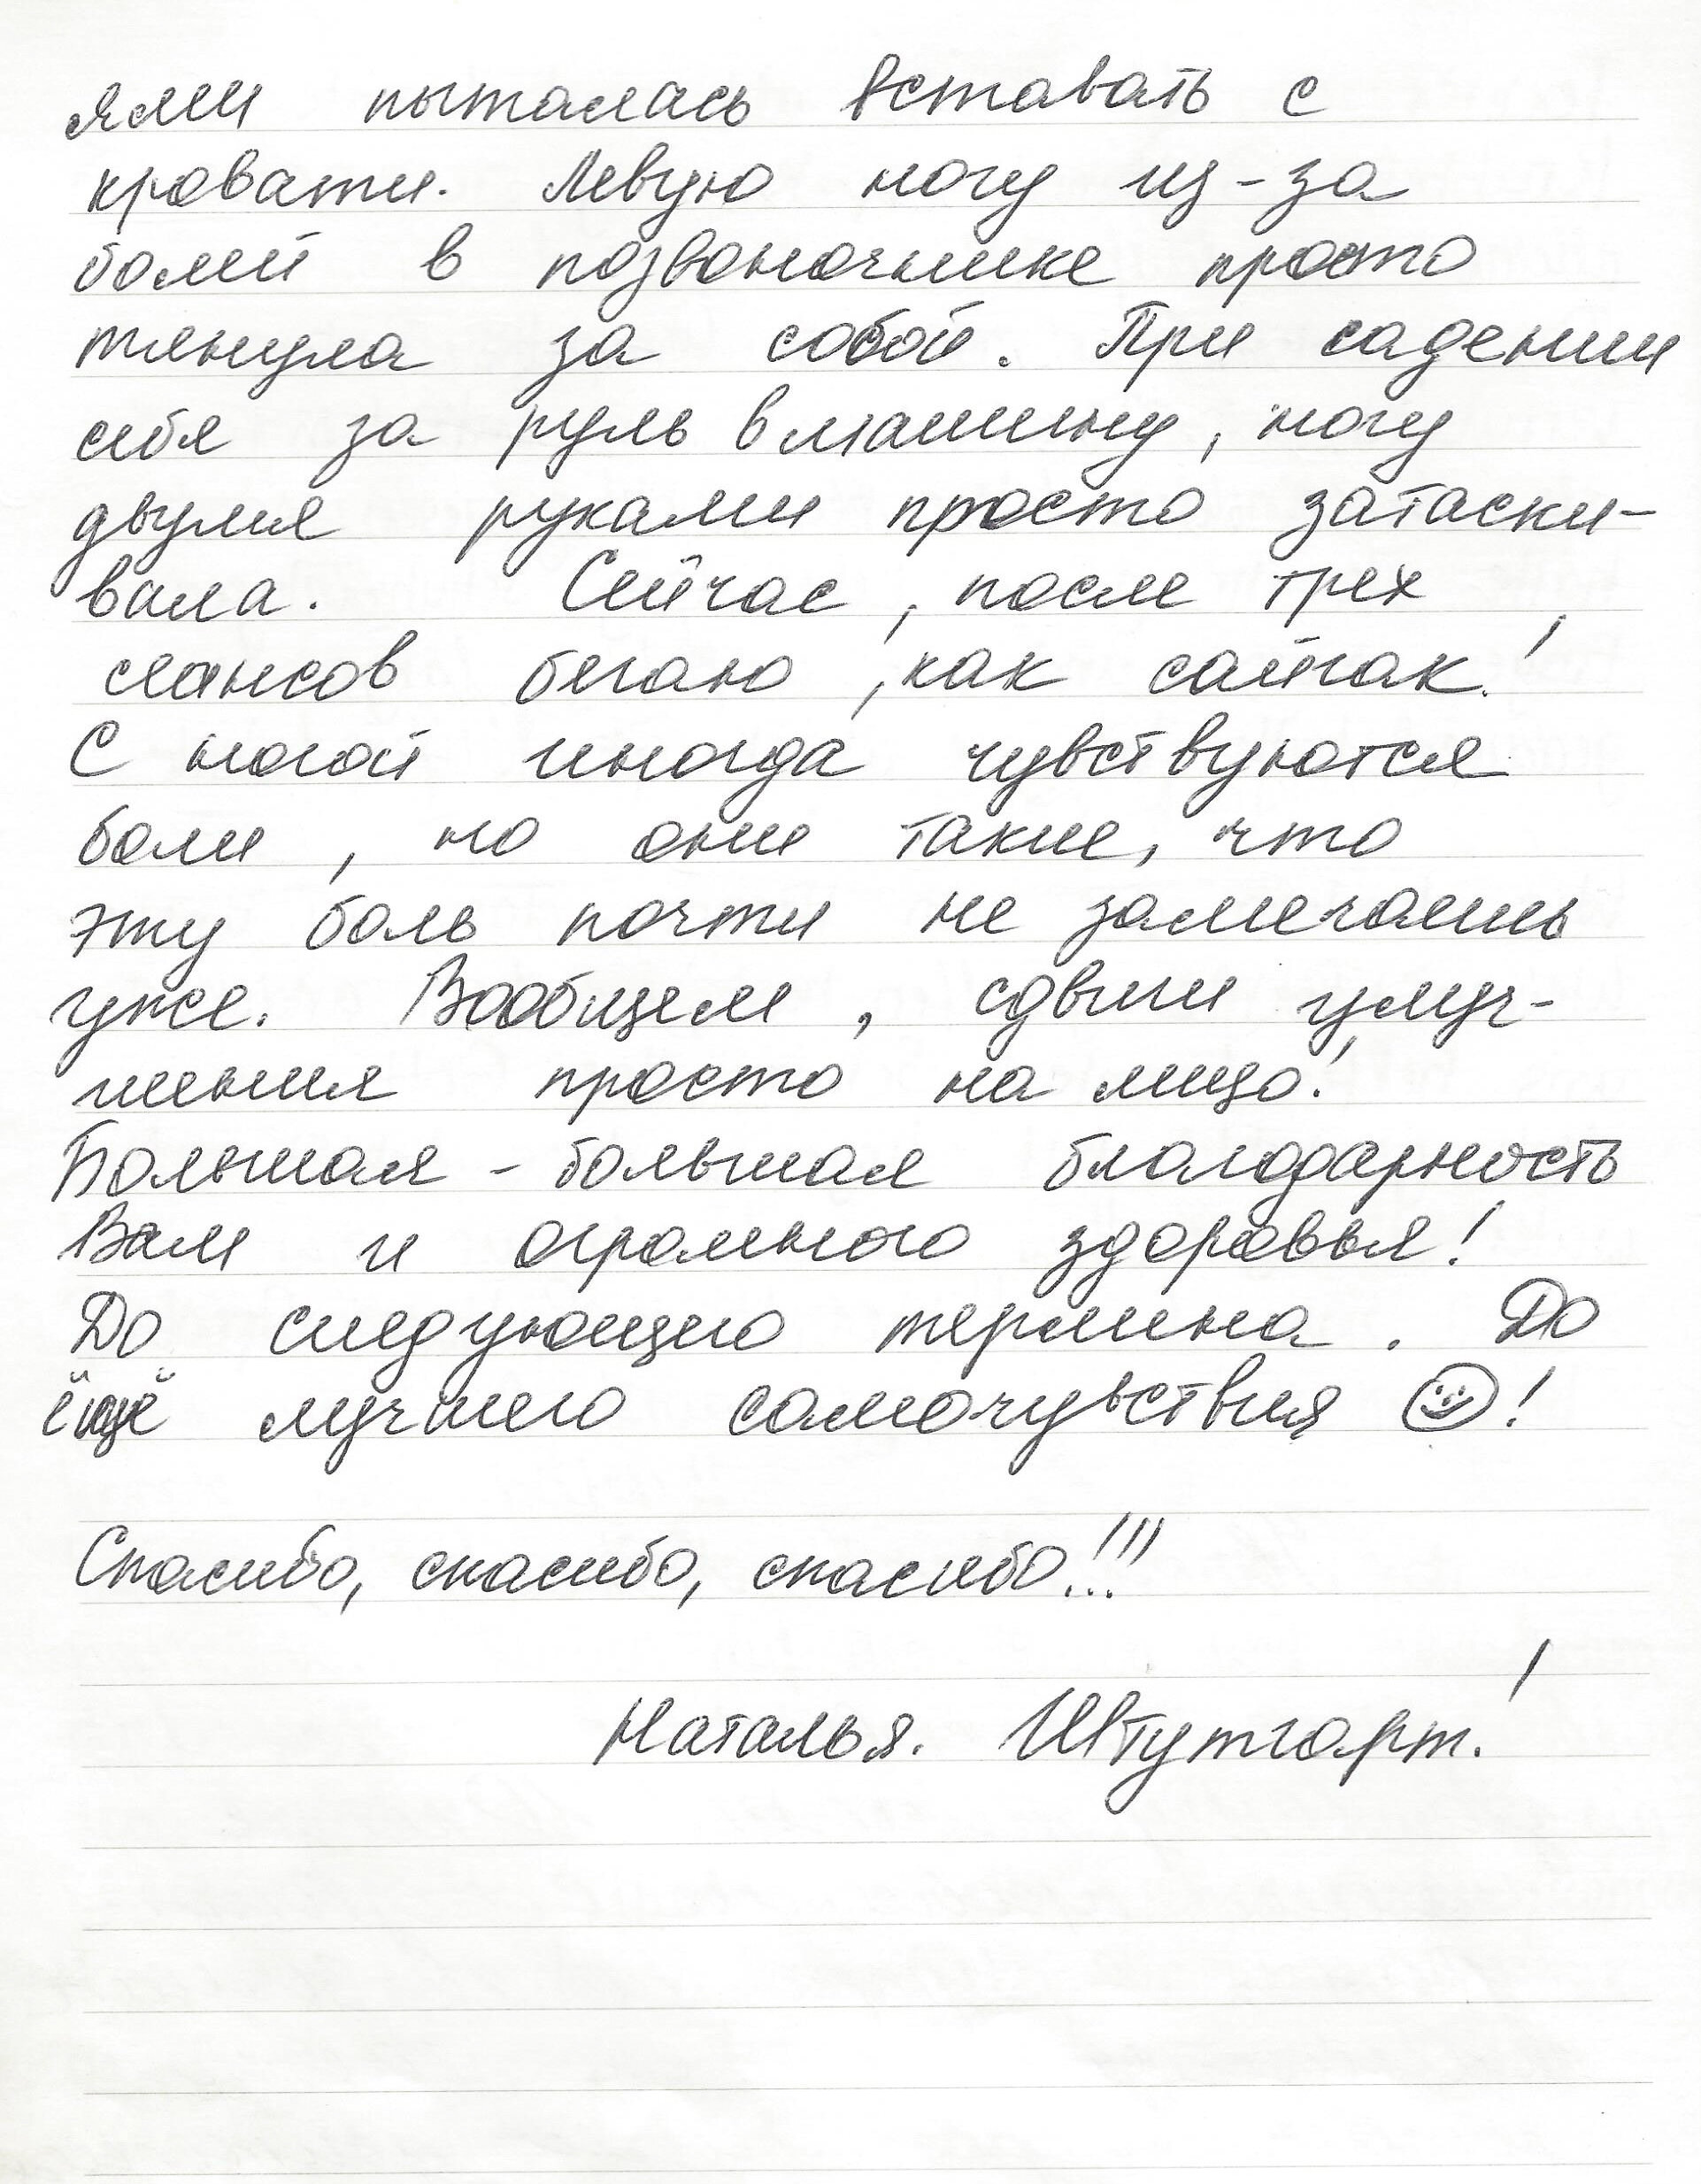 ями пыталась вставать с
кровати. Левую ногу из-за
болей в позвоночнике просто
тянула за собой. При садении
себя за руль в машину, ногу
двумя руками просто затаски-
вала. Сейчас, после трех
сеансов бегаю, как сайгак!
С ногой иногда чувствуются
боли, но они такие, что
эту боль почти не замечаешь
уже. Вообщем, сдвиги улуч-
шения просто на лицо!
Большая - большая благодарность
Вам и огромного здоровья!
До следующего термина. До
ёщё лучшего самочувствия ☺!
Спасибо, спасибо, спасибо!!!
Наталья. Штутгарт!